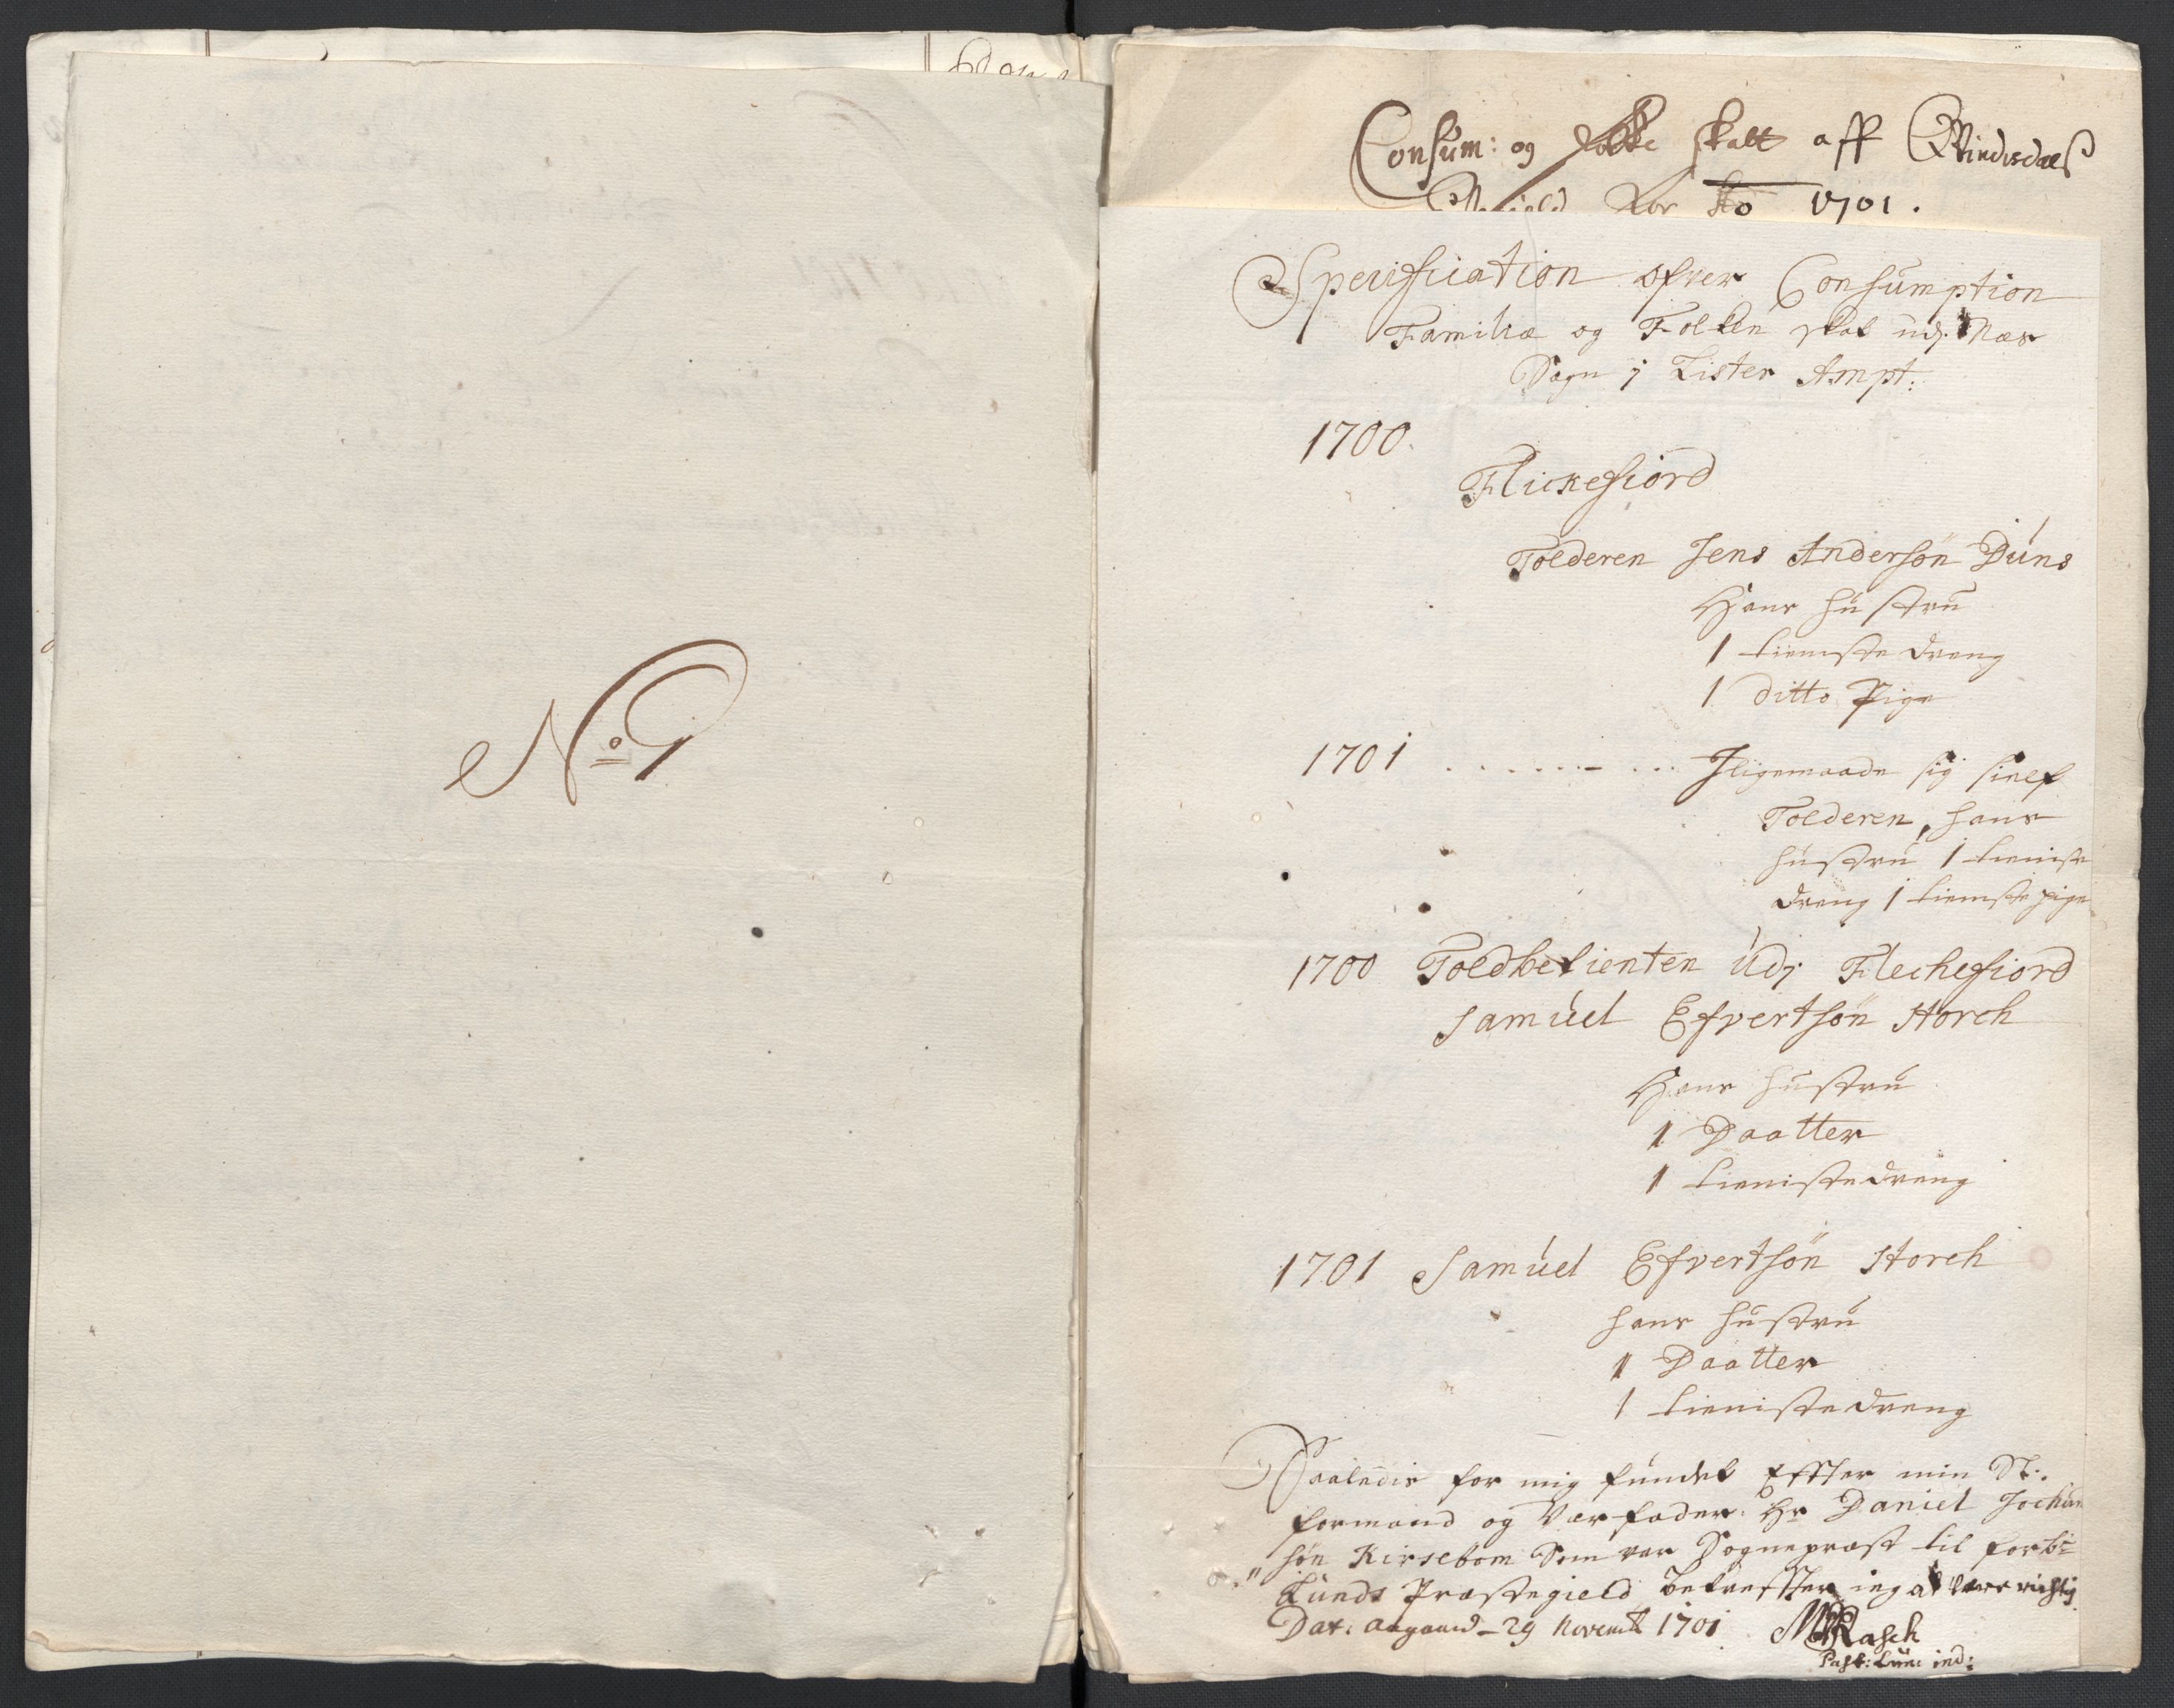 No 9
Consum: og Folke skatt aff Qvindisdals
for Ao 1701.
Specification ofver Consumption
Familiæ og Folken skat udj Næs
Sogn j Lister Ampt:
1700.
Flickefiord
Tolderen Jens Andersøn Duns
Hans hustru
1 tienniste dreng
1 ditto Pige
1701 . . . . . . - . . . Iligemaade sig sielf
Tolderen, hans
hustru 1 tieniste
dreng 1 tieniste pige
1700 Toldbetienten Udj Flechefiord
Samuel Efvertsøn Storch
Hans hustru
1 Daatter
1 tieniste dreng
1701 Samuel Efvertsøn Storch
hans hustru
1 Daatter
1 tieniste dreng
Saaledis for mig fundet Effter min Sl.
formand og Værfader Hr Daniel Jochum
søn Kirsebom Som var Sognepræst til for be:
Lunds Præstegield bekreffter ieg at være richtig
Dat: Aagaard - 29 Novemb 1701 MRasch
Past: Lun: ind: